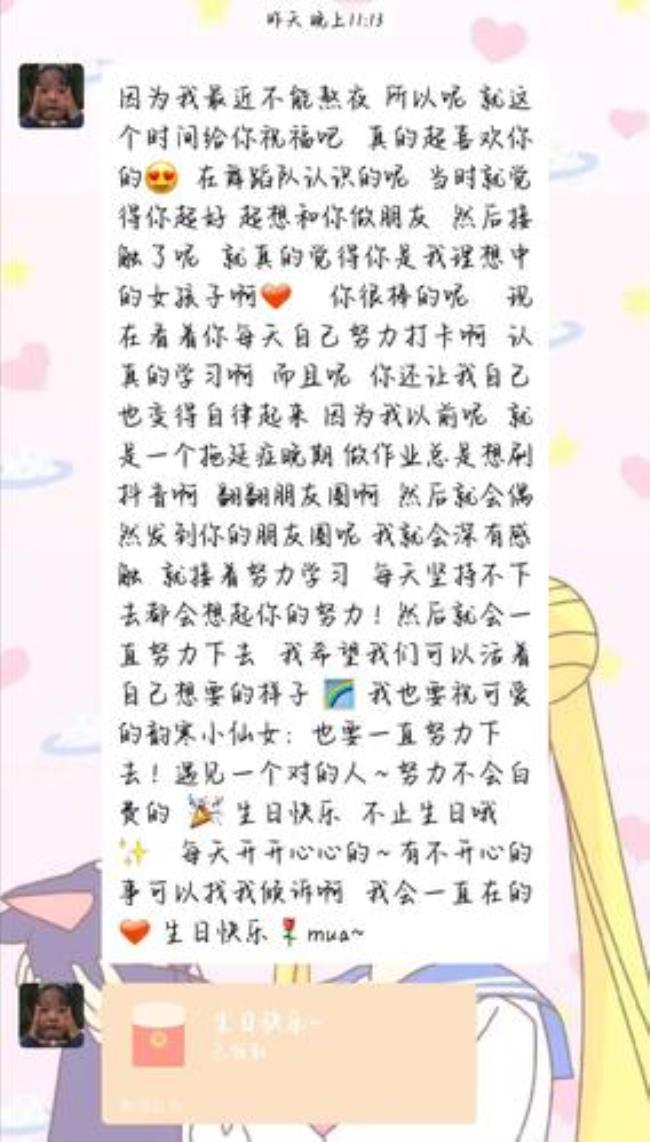 昨天 晚上11:13
因为我最近不能熬夜 所以呢 就这
个时间给你祝福吧 真的超喜欢你
的😍 在舞蹈队认识的呢 当时就觉
得你超好 超想和你做朋友 然后接
触了呢 就真的觉得你是我理想中
的女孩子啊❤️ 你很棒的呢 现
在看着你每天自己努力打卡啊 认
真的学习啊 而且呢 你还让我自己
也变得自律起来 因为我以前呢 就
是一个拖延症晚期 做作业总是想刷
抖音啊 翻翻朋友圈啊 然后就会偶
然发到你的朋友圈呢 我就会深有感
触 就接着努力学习 每天坚持不下
去都会想起你的努力！然后就会一
直努力下去 我希望我们可以活着
自己想要的样子 🌈 我也要祝可爱
的韵寒小仙女：也要一直努力下
去！遇见一个对的人~努力不会白
费的 🎉 生日快乐 不止生日哦
✨ 每天开开心心的~有不开心的
事可以找我倾诉啊 我会一直在的
❤️ 生日快乐🌹mua~
生日快乐~
已领取